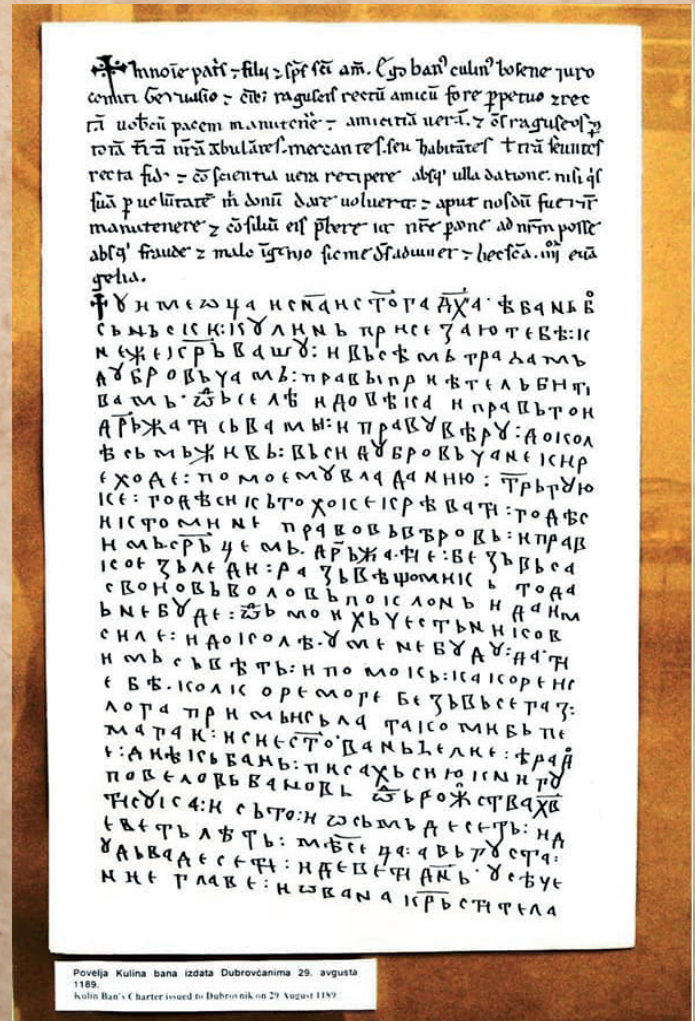 ☩ In noīe patīs ⁊ filij ⁊ sp̄s sc̄i am̄. Ego banꝰ culinꝰ bosene iuro
comiti Geruasio ⁊ oīb; raguseis rectū amicū fore ꝑpetuo ⁊ rec
tā uobcū pacem manutenēe ⁊ amicitiā uerā. ⁊ ōs raguseos ꝑ
totā t̄rā nr̄ā ābulātes. mercantes. seu habitātes t̄rāseuntes
recta fid ⁊ cō scientia uera recipere absqꝫ ulla datione. nisi q̇s
suā ꝑ uolūtatē m̄ donū dare uoluerit. ⁊ aput nos dū fuerīt
manutenere ⁊ cōsiliū eis p̄bere ut nr̄e ꝑsone ad nr̄m posse
absqꝫ fraude ⁊ malo īgenio sic me d̄s adiuuet ⁊ hec sc̄a. iiii euā
gelia.
† У имє ѡца и сн҃а и ст҃ога дх҃а· ѣ бань бо
сьньски: кулинь присєзаю тєбѣ: к
нєжє кр҃ьвашу: и вьсѣмь грађамь
дубровьчамь: правы приѣтєль быти
вамь· ѿь сєлѣ и довѣка и правь гои
др҃ьжати сь вамы: и праву вѣру: докол
ѣ сьмь живь: вьси дубровьчанє кир
є ходє: по моєму владанию: тр҃ьгую
кє: годѣ си кьто хокє крѣвати: годѣ с
и кто минє правовь вѣровь: и прав
имь ср҃ьцємь. др҃ьжати є: бєзь вьса
коє зьлєди: развѣ що ми к ь то да
своиовь воловь поклонь и да им
ь нє будє: ѿь моихь чєстьниковь
силє: и доколѣ· у мєнє буду: дати
имь сьвѣть: и помокь: какорє и с
єбѣ. коликорє морє бєзь вьсєга з:
лога примысьла тако ми б҃ь пє
магаи: и сиє ст҃о єванђєлиє: ѣ рад
оє диѣкь бань: писахь сию книгу
повєловь бановь ѿь рож҃ства хв҃
тисука: и сьто: и ѡсьмь дєсєть: и д
євєть лѣть: мѣсєца: авьгуста:
у дьвадєсєти: и дєвєти дн҃ь· усѣчє
ниє главє: иѡвана кр҃ьститєла
Povelja Kulina bana izdata Dubrovčanima 29. avgusta
1189.
Kulin Ban's Charter issued to Dubrovnik on 29 August 1189